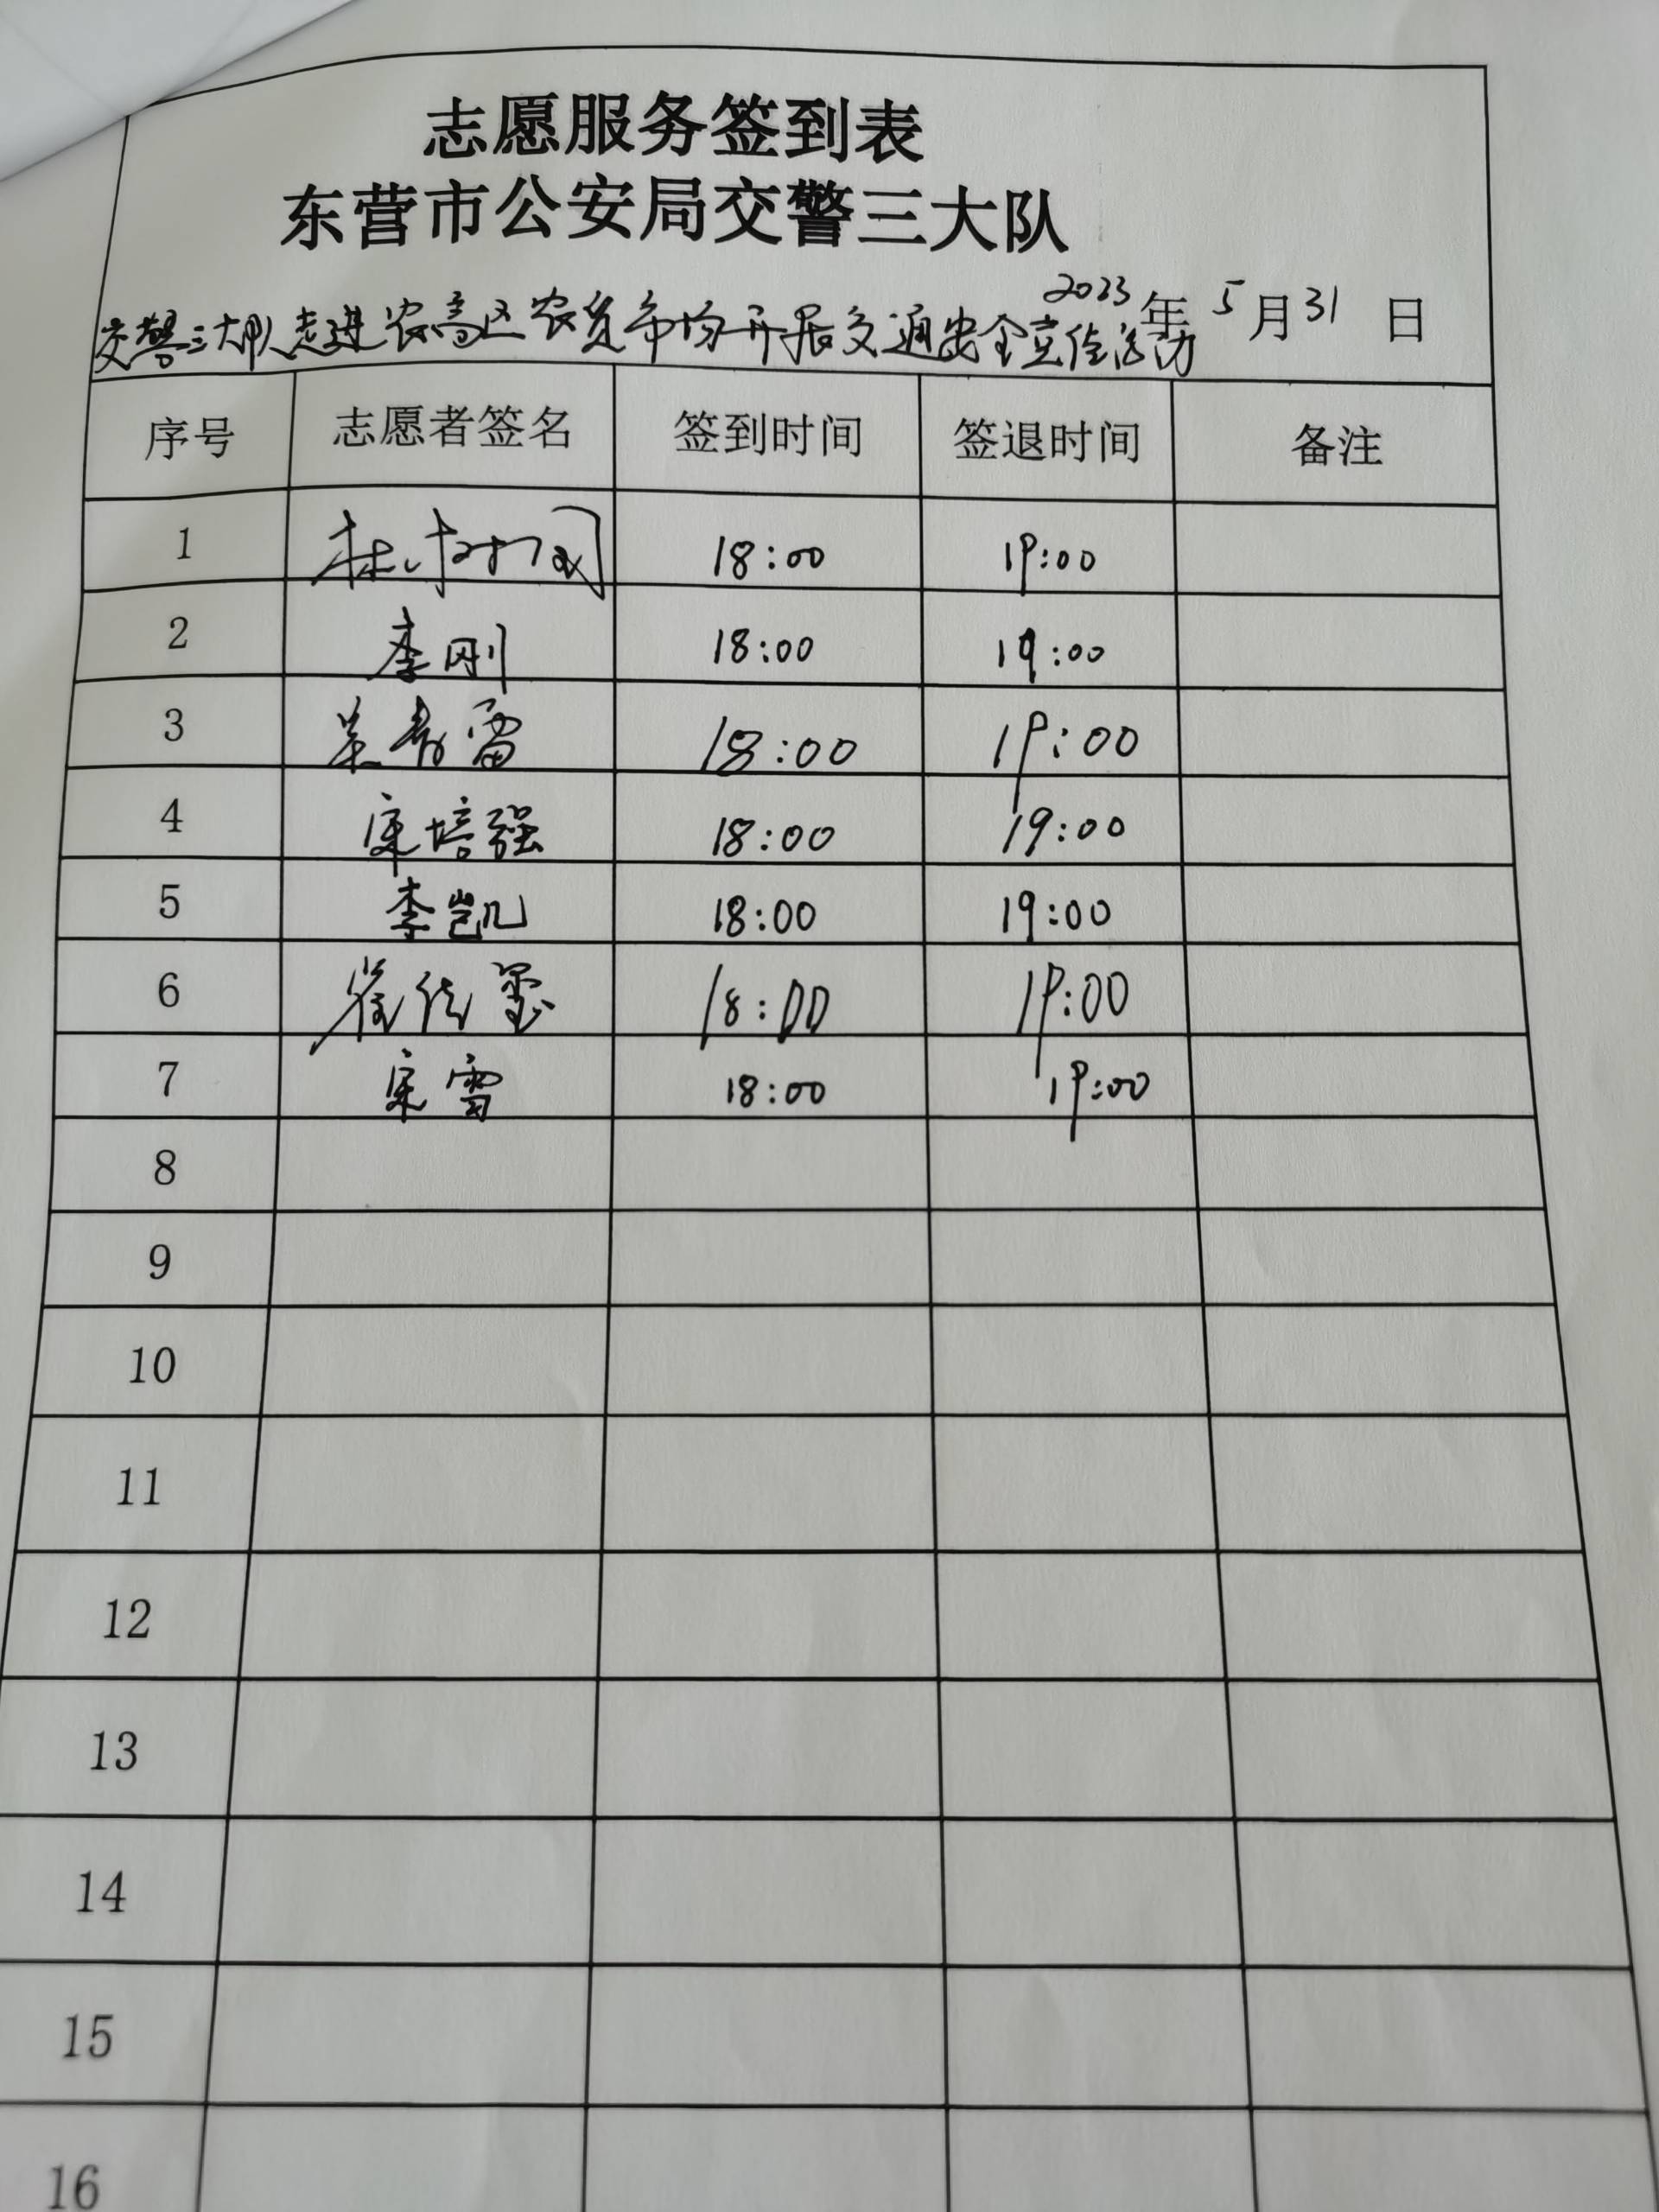 志愿服务签到表
东营市公安局交警三大队
2023年5月31日
交警三大队走进农高区农贸市场开展交通安全宣传活动
序号 志愿者签名 签到时间 签退时间 备注
1 18:00 19:00
2 李刚 18:00 19:00
3 18:00 19:00
4 宋培强 18:00 19:00
5 李凯 18:00 19:00
6 18:00 19:00
7 宋雷 18:00 19:00
8
9
10
11
12
13
14
15
16